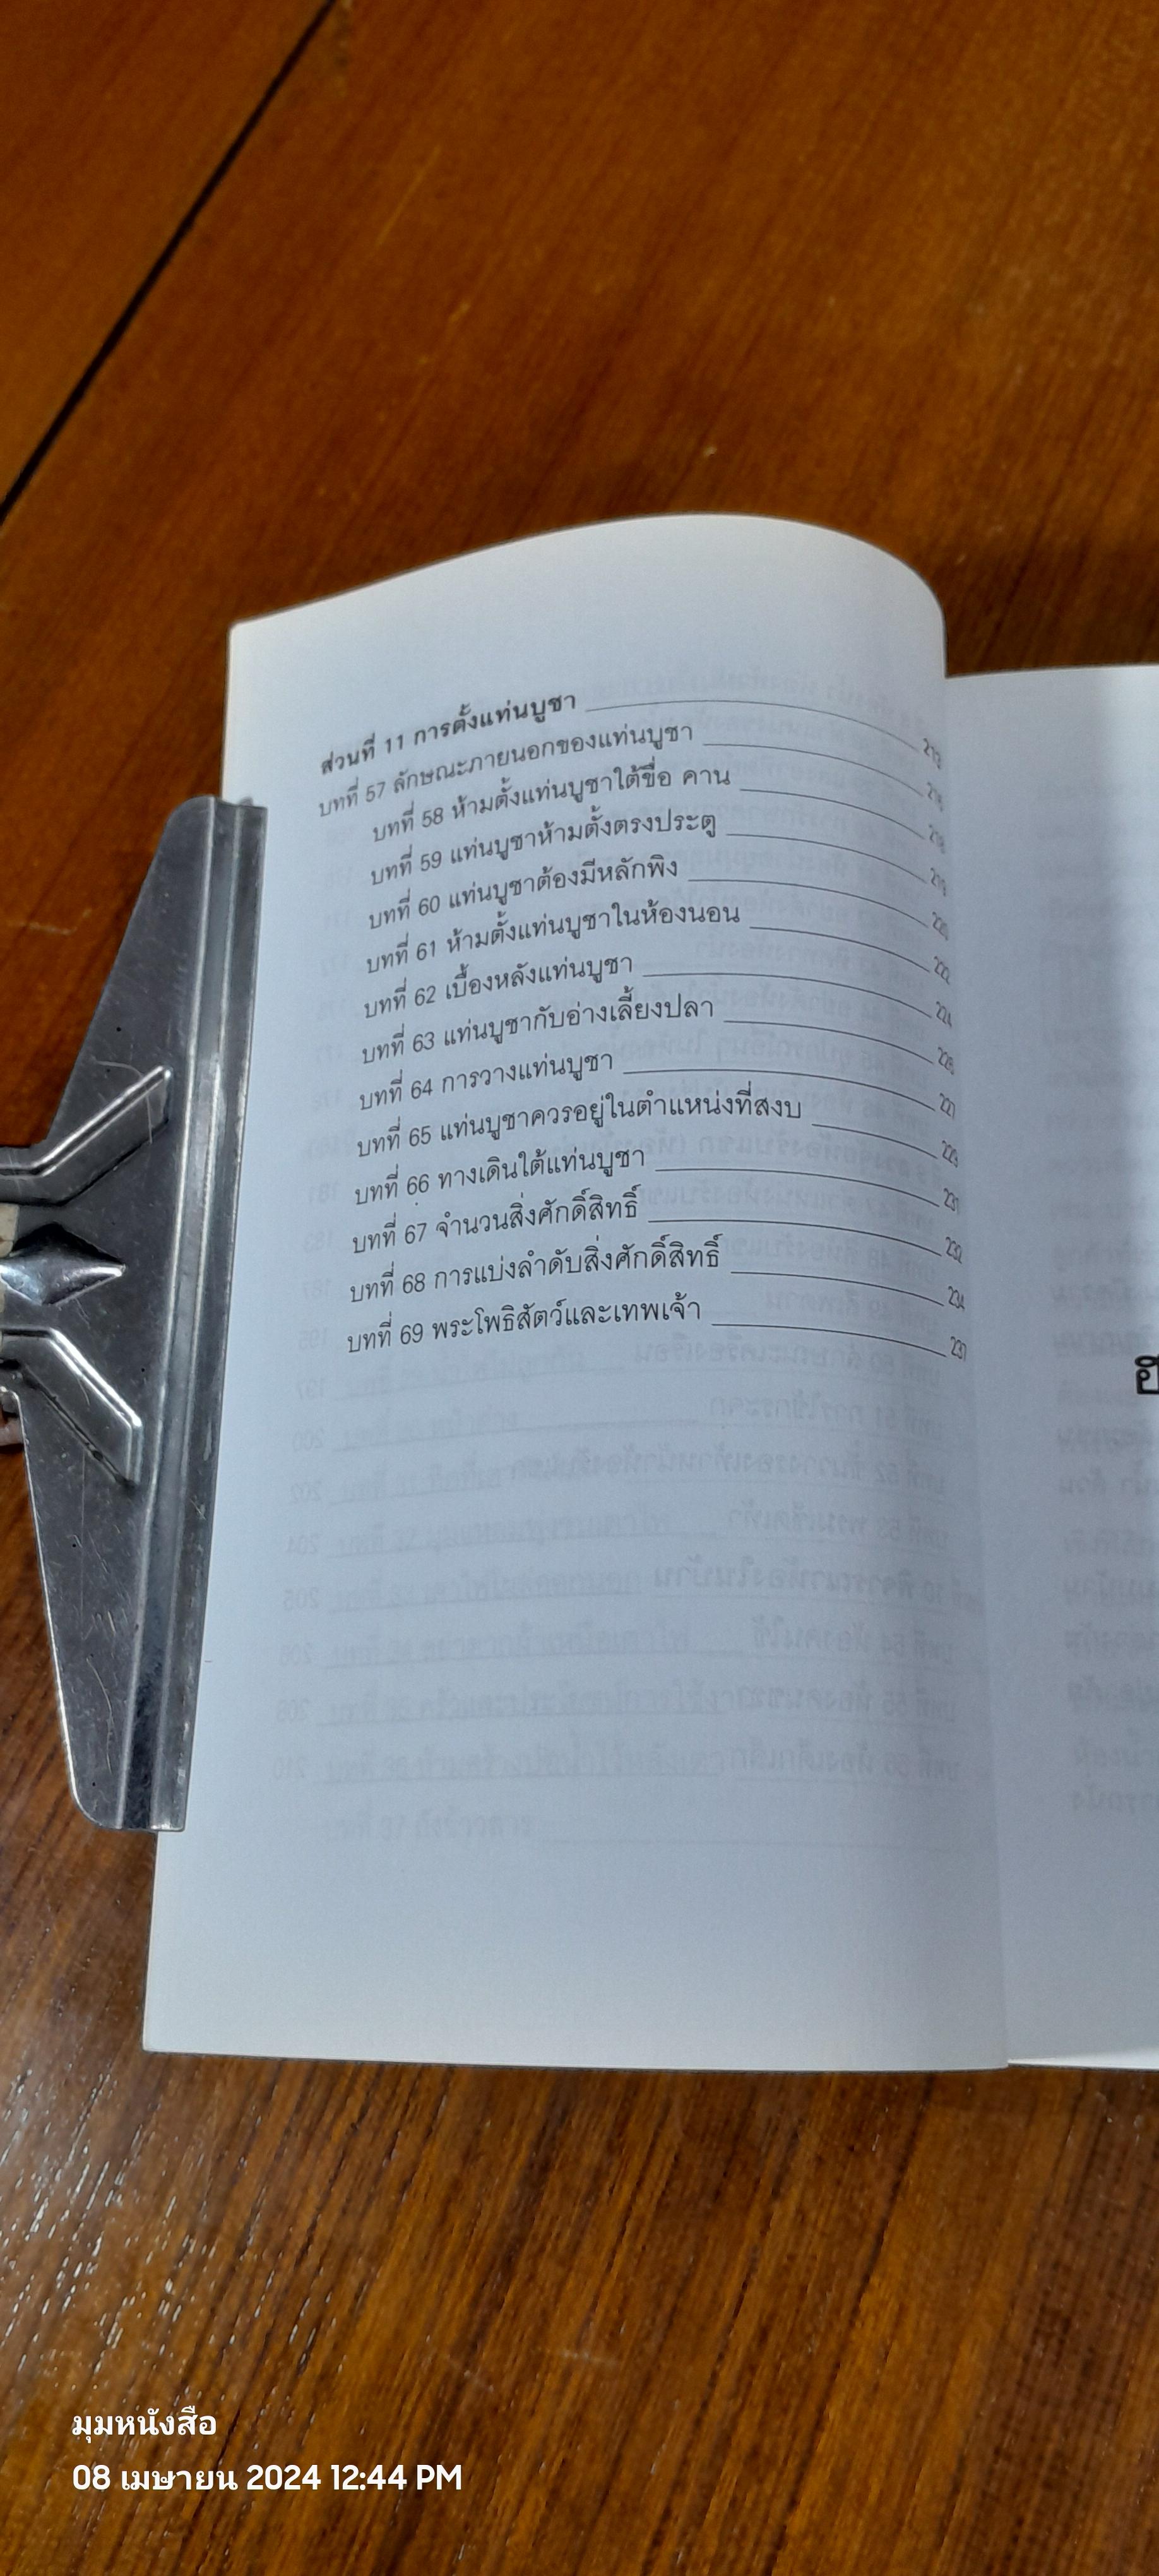 ส่วนที่ 11 การตั้งแท่นบูชา 213
บทที่ 57 ลักษณะภายนอกของแท่นบูชา
บทที่ 58 ห้ามตั้งแท่นบูชาใต้ขื่อ คาน
บทที่ 59 แท่นบูชาห้ามตั้งตรงประตู
บทที่ 60 แท่นบูชาต้องมีหลักพิง
บทที่ 61 ห้ามตั้งแท่นบูชาในห้องนอน 222
บทที่ 62 เบื้องหลังแท่นบูชา 224
บทที่ 63 แท่นบูชากับอ่างเลี้ยงปลา
บทที่ 64 การวางแท่นบูชา 227
บทที่ 65 แท่นบูชาควรอยู่ในตำแหน่งที่สงบ 229
บทที่ 66 ทางเดินใต้แท่นบูชา 231
บทที่ 67 จำนวนสิ่งศักดิ์สิทธิ์ 232
บทที่ 68 การแบ่งลำดับสิ่งศักดิ์สิทธิ์ 234
บทที่ 69 พระโพธิสัตว์และเทพเจ้า 237
มุมหนังสือ
08 เมษายน 2024 12:44 PM